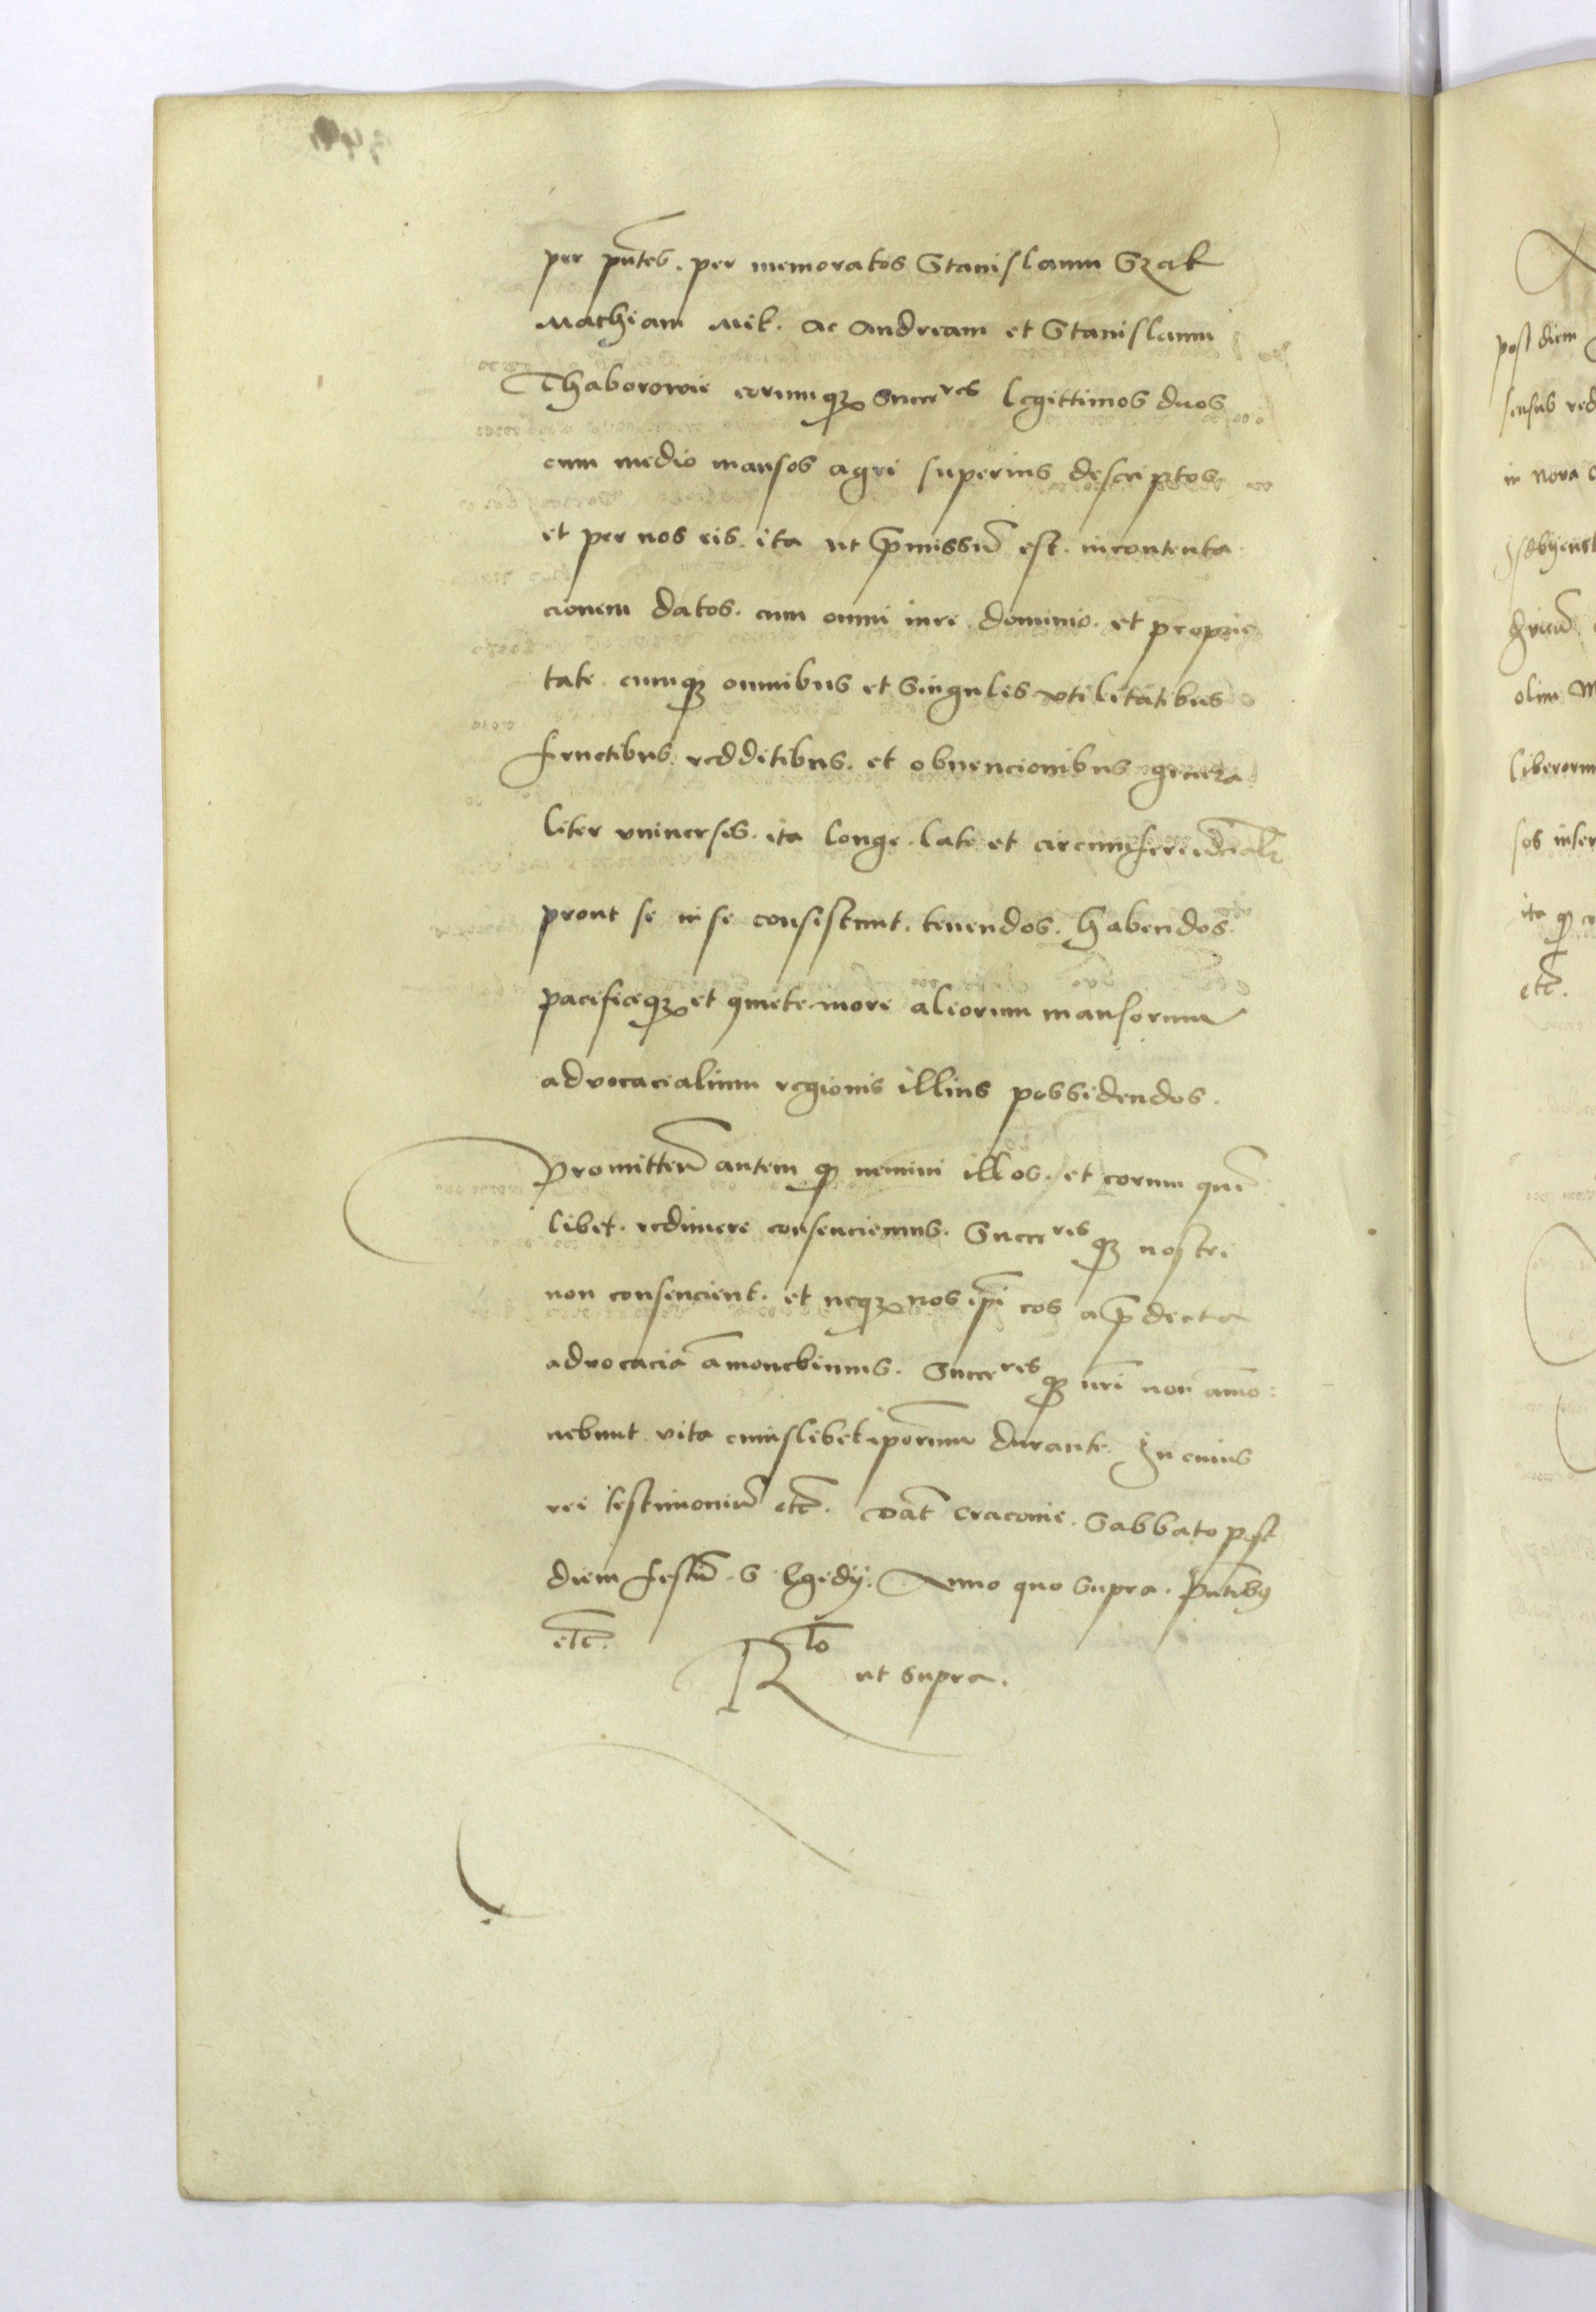 per pñtes. per memoratos Stanislaum Szak
Mathiam Mik. ac Andream et Stanislaum
Thaborowie eorumqȝ Succeres legittimos duos
cum medio mansos agri superius descriptos
et per nos eis. ita ut p̄missū est. incontenta
cionem datos. cum omni iure. dominio. et proprie
tate. cumqȝ omnibus et Singulis vtilitatibus
fructibus. redditibus. et obuencionibus genera
liter vniuersis. ita longe. late et circumferēcialr
prout se in se consistunt. tenendos. habendos.
pacificeqȝ et quiete more aliorum mansorum
advocacialium regionis illius possidendos.
Promitteñ autem qȝ nemini illos. et eorum quē
libet. redimere consenciemus. Succeres qȝ nostri
non consencient. et neqȝ nos ip̄i eos a p̄dicta
advocacia amouebimus. Succeres qȝ nr̄i non amo:
uebunt vita cuiuslibet ip̄orum durante. In cuius
rei testimoniū etc̄. Dat̄ Cracouie. Sabbato post
diem festū S Egidij. Anno quo Supra. Pñtibus
etc̄.
R̄to ut Supra.
post diem
sensus red
in nova
olim M
liberorum
sos inser
ita qȝ
etc̄.